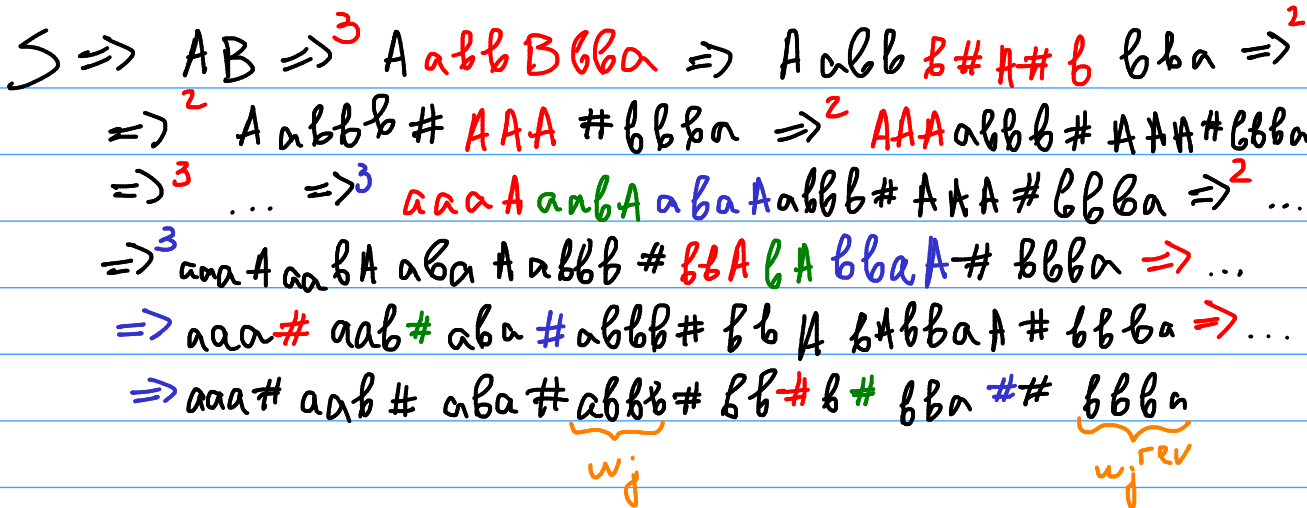 S => AB =>³ A abb B bba => A abb b # A # b bba =>²
=>² A abbb # AAA # bbba =>² AAA abbb # AAA # bbba
=>³ ... =>³ aaaA aabA abaA abbb # AAA # bbba =>² ...
=>³ aaa A aabA aba A abbb # bbA bA bbaA # bbba => ...
=> aaa # aab # aba # abbb # bb A bAbbaA # bbba => ...
=> aaa # aab # aba # abbb # bb # b # bba # # bbba
w_j w_j^rev